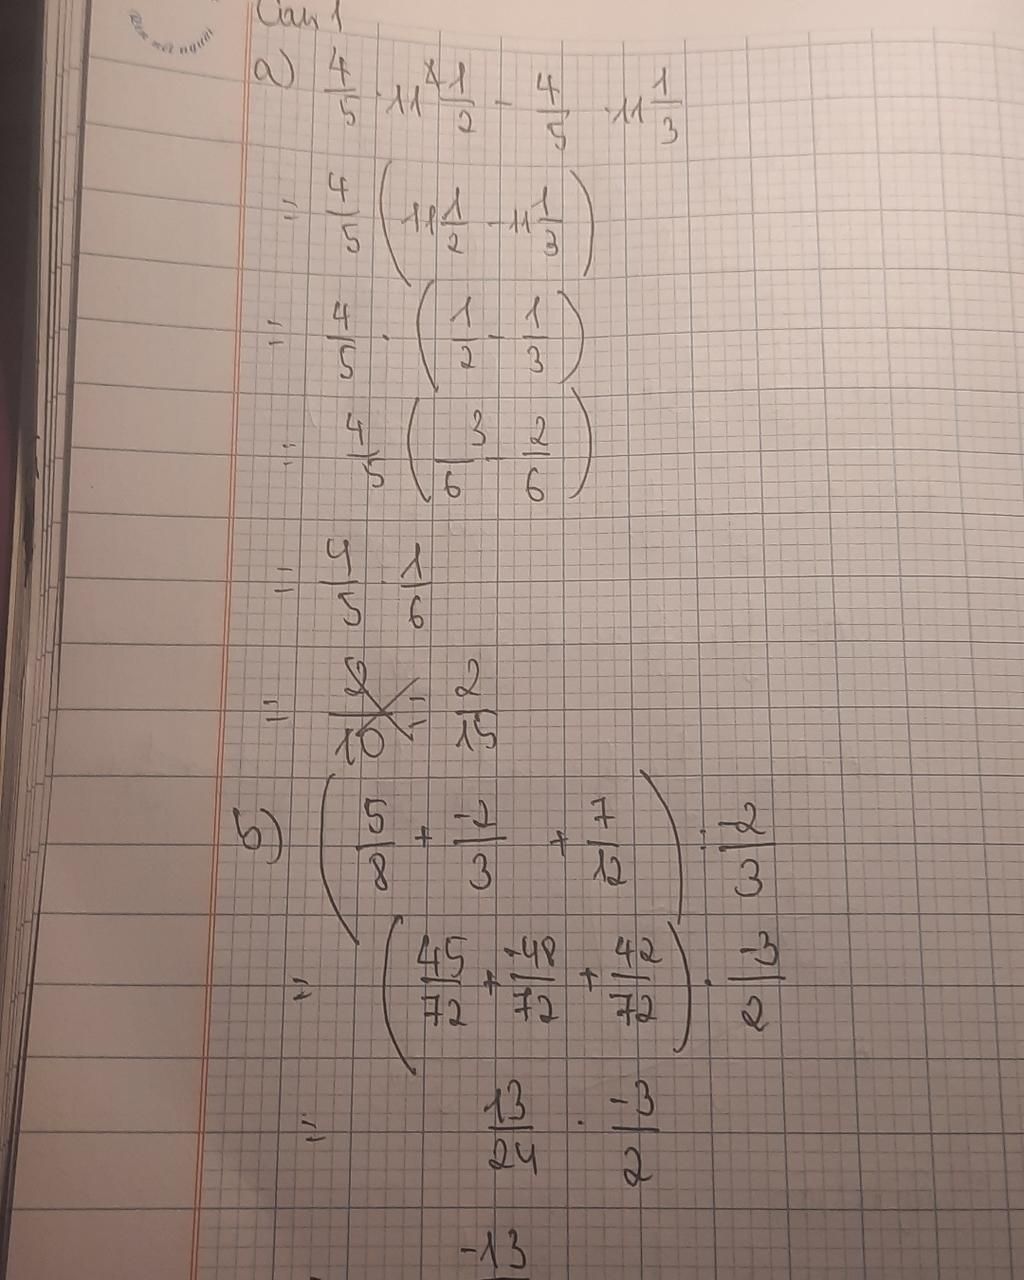 Câu 1
a) 4/5 · 11 1/2 - 4/5 · 11 1/3
= 4/5 (11 1/2 - 11 1/3)
= 4/5 · (1/2 - 1/3)
= 4/5 (3/6 - 2/6)
= 4/5 · 1/6
= = 2/15
b) (5/8 + -2/3 + 7/12) : -2/3
= (45/72 + -48/72 + 42/72) · -3/2
= 13/24 · -3/2
-13